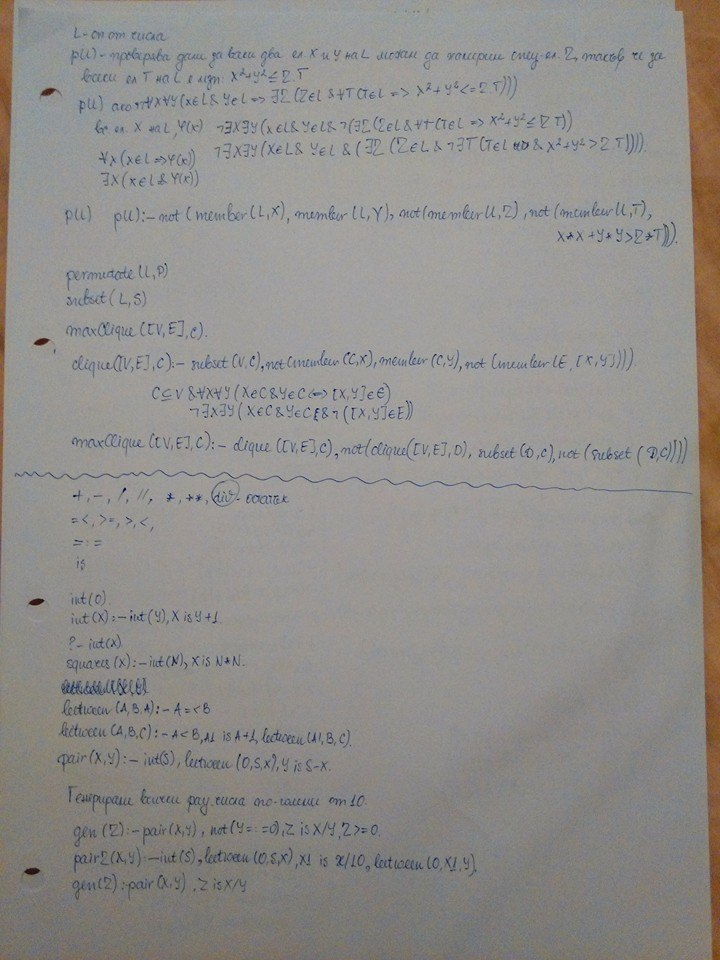 L - сп. от числа
p(L) - проверява дали за всеки два ел. X и Y на L можем да намерим спец. ел. Z, такъв че за
всеки ел T на L е изп: X²+Y² ≤ Z.T
p(L) ∀X∀Y(X∈L & Y∈L => ∃Z(Z∈L & ∀T(T∈L => X²+Y² <= Z.T)))
ел. X на L, φ(X) ¬∃X∃Y(X∈L & Y∈L & ¬(∃Z(Z∈L & ∀T(T∈L => X²+Y² ≤ Z T))
∀X(X∈L => φ(X)) ¬∃X∃Y(X∈L & Y∈L & (∃Z(Z∈L & ¬∃T(T∈L & X²+Y² > Z.T)))).
∃X(X∈L & φ(X))
p(L) p(L):- not(member(L,X), member(L,Y), not(member(L,Z), not(member(L,T),
X*X+Y*Y>Z*T))).
permutate(L,P)
subset(L,S)
maxClique([V,E],C).
clique([V,E],C):- subset(V,C), not(member(C,X), member(C,Y), not(member(E,[X,Y]))).
C⊆V & ∀X∀Y(X∈C & Y∈C <=> [X,Y]∈E)
¬∃X∃Y(X∈C & Y∈C & ¬([X,Y]∈E))
maxClique([V,E],C):- clique([V,E],C), not(clique([V,E],D), subset(D,C), not(subset(D,C))))
+, -, /, //, *, **, div - остатък
=<, >=, >, <,
=:=
is
int(0).
int(X):- int(Y), X is Y+1.
?- int(X)
squares(X):- int(N), X is N*N.
between(A,B,A):- A=<B
between(A,B,C):- A<B, A1 is A+1, between(A1,B,C).
pair(X,Y):- int(S), between(0,S,X), Y is S-X.
Генериране всички рац. числа по-големи от 10.
gen(Z):- pair(X,Y), not(Y=:=0), Z is X/Y, Z>=0.
pair2(X,Y):- int(S), between(0,S,X), X1 is X/10, between(0,X1,Y).
gen(Z):- pair(X,Y), Z is X/Y